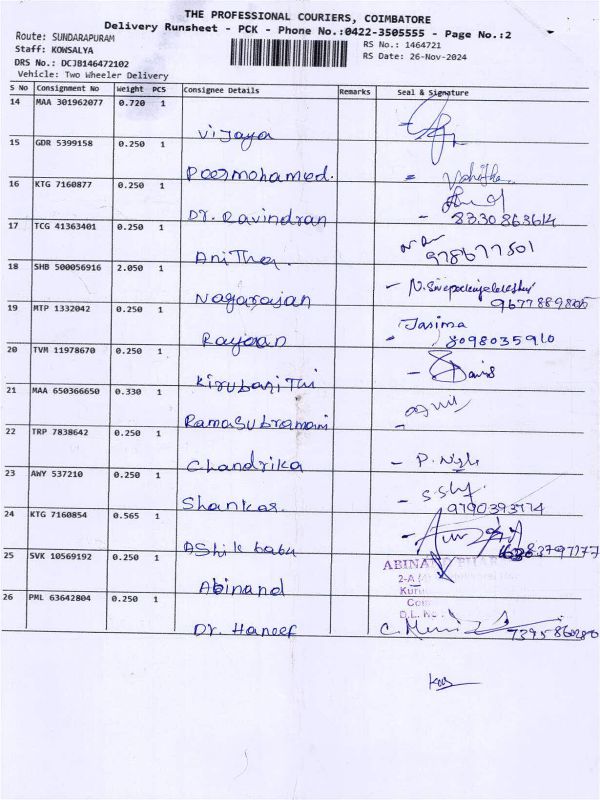 THE PROFESSIONAL COURIERS, COIMBATORE
Delivery Runsheet - PCK - Phone No.:0422-3505555 - Page No.:2
Route: SUNDARAPURAM
RS No.: 1464721
Staff: KOWSALYA
RS Date: 26-Nov-2024
DRS No.: DCJB146472102
Vehicle: Two Wheeler Delivery
S No Consignment No Weight PCS Consignee Details Remarks Seal & Signature
14 MAA 301962077 0.720 1
Vijaya
15 GDR 5399158 0.250 1
Peermohamed.
16 KTG 7160877 0.250 1
Dr. Ravindran 8330863614
17 TCG 41363401 0.250 1
Anitha. 978677501
18 SHB 500056916 2.050 1
Nagarajan
19 MTP 1332042 0.250 1 Jasima
Rajan 8098035910
20 TVM 11978670 0.250 1
Kirubanithi
21 MAA 650366650 0.330 1
Ramasubramani
22 TRP 7838642 0.250 1
Chandrika
23 AWY 537210 0.250 1
Shankar. 9790393774
24 KTG 7160854 0.565 1
Ashik babu
25 SVK 10569192 0.250 1
Abinand
26 PML 63642804 0.250 1
Dr. Haneef